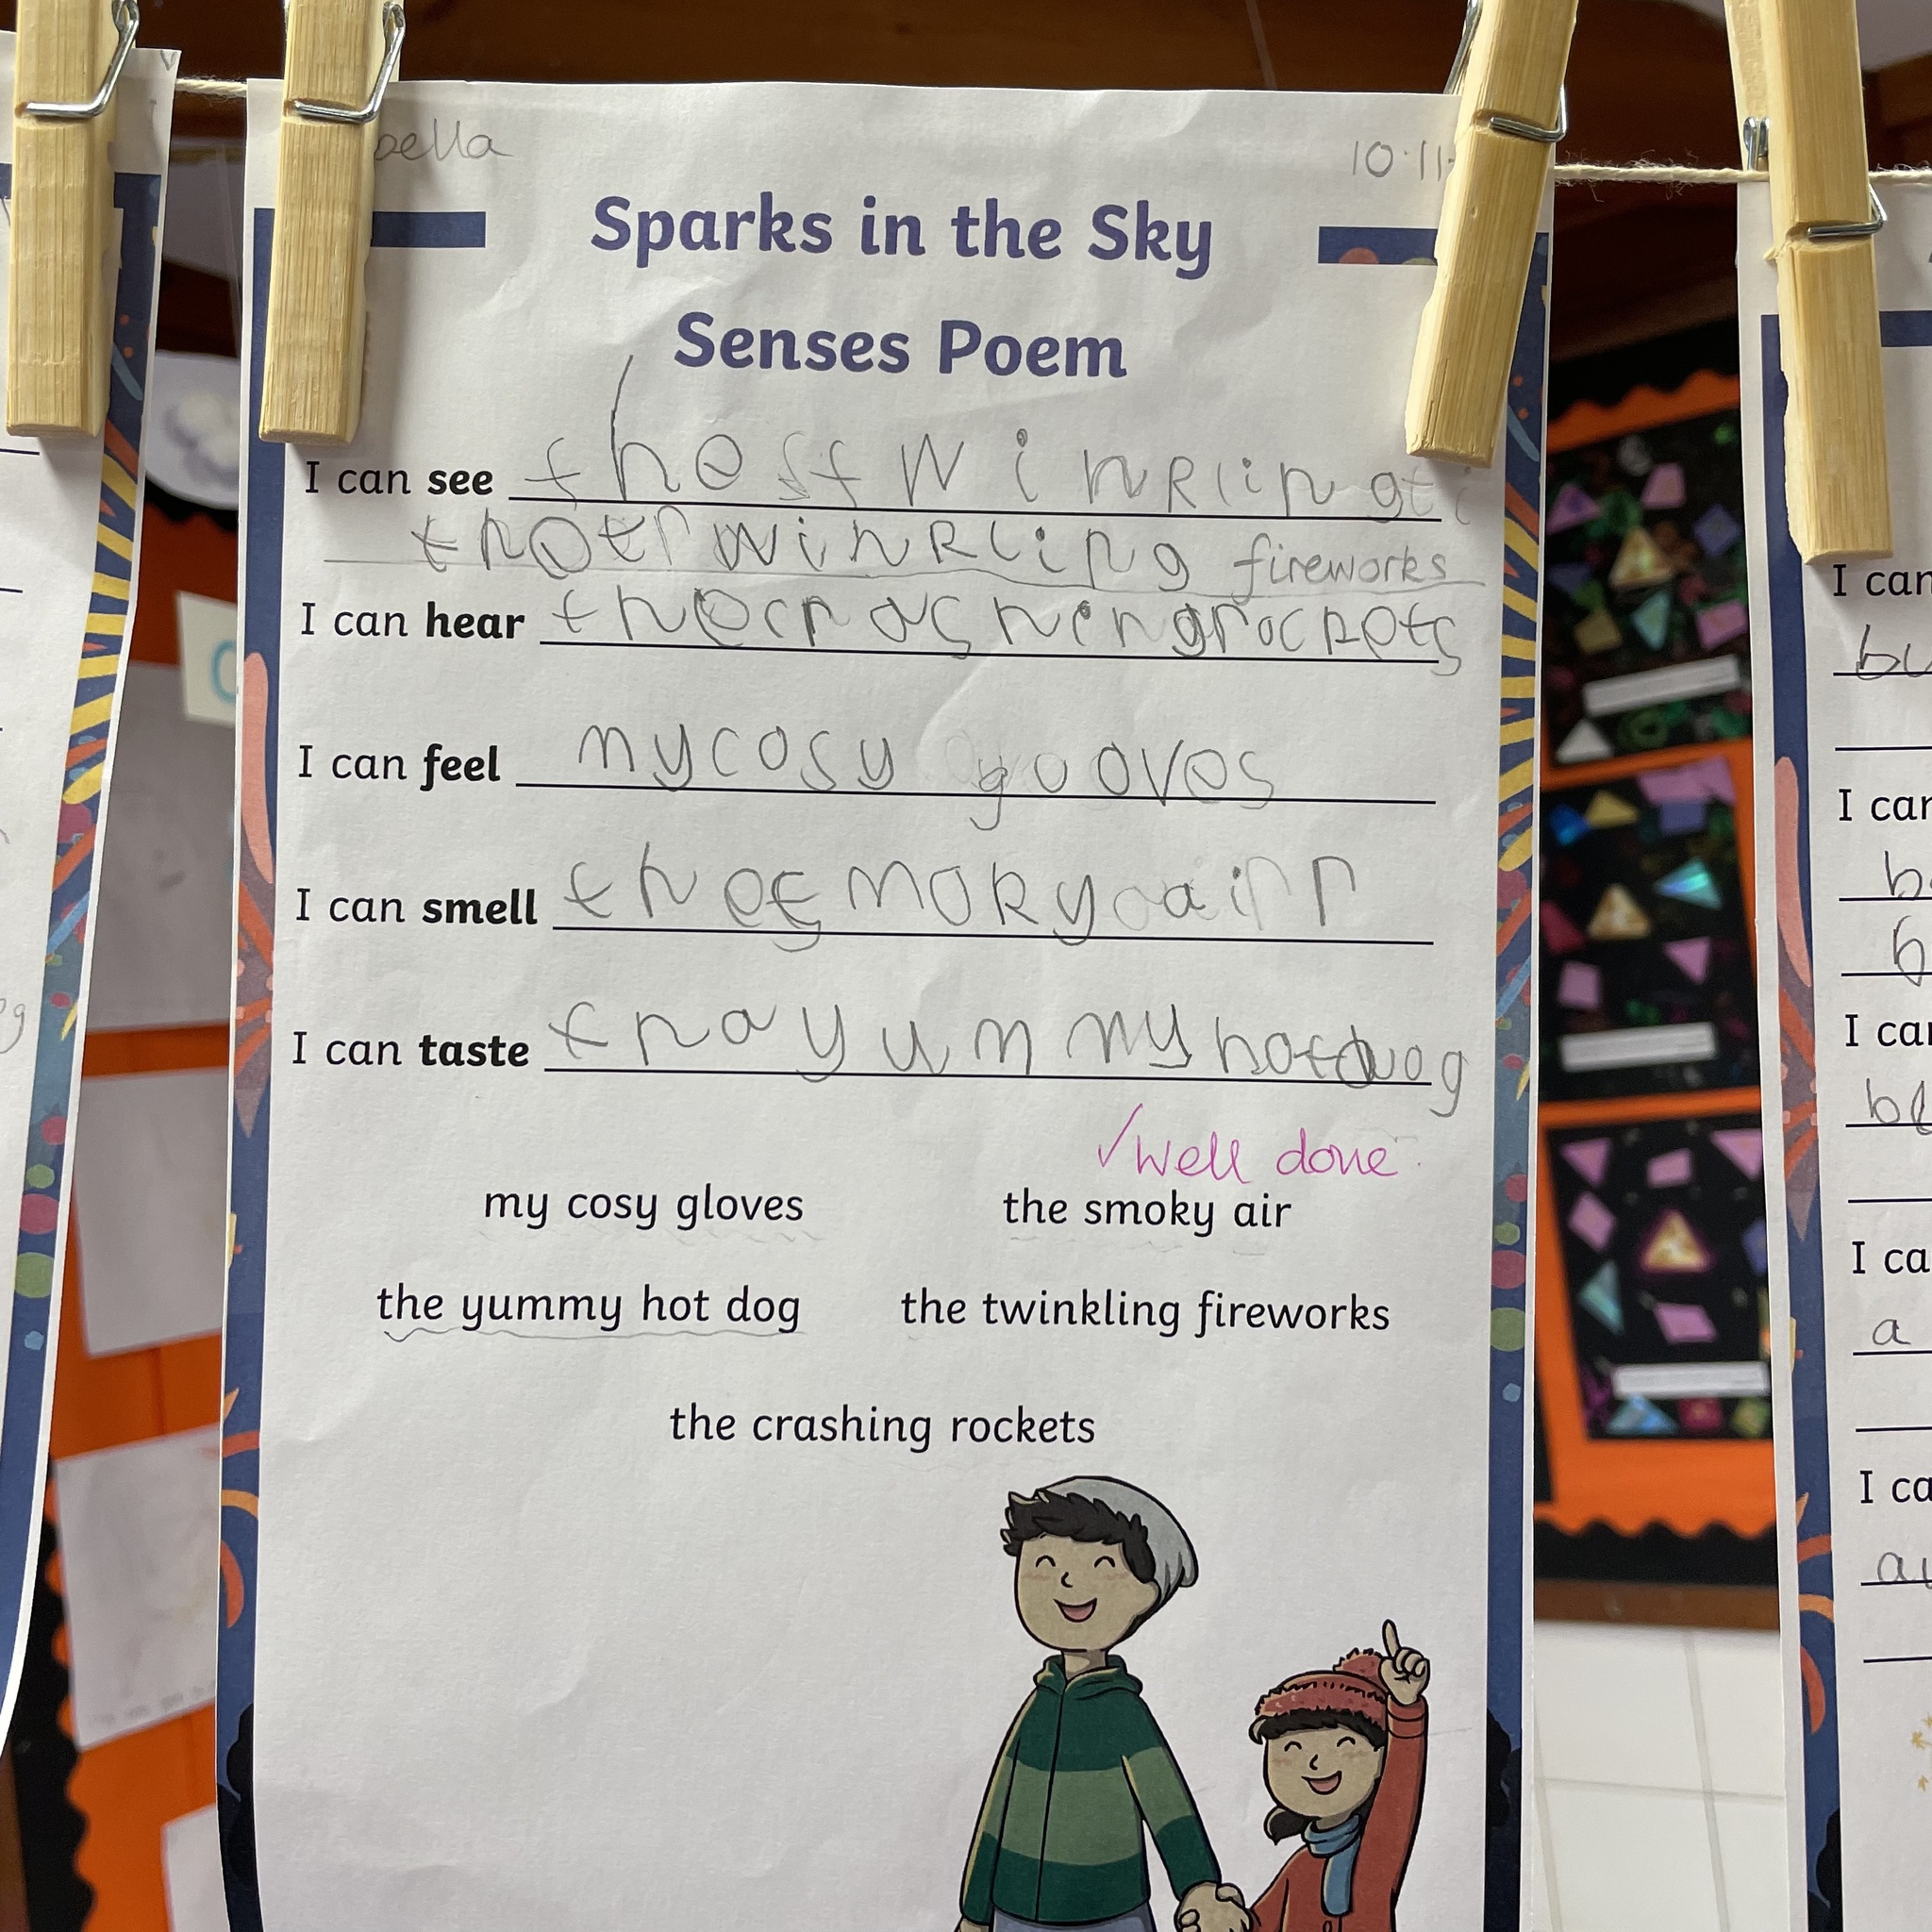 bella
10.11.
Sparks in the Sky
Senses Poem
I can see thestwinklingti
thetrwinkling fireworks
I can hear thecrashingrockets
I can feel mycosy gooves
I can smell thesmokyairr
I can taste thayummyhotdog
✓well done
my cosy gloves the smoky air
the yummy hot dog the twinkling fireworks
the crashing rockets
I can
bu
I can
b
b
I can
bl
I ca
a
I ca
au